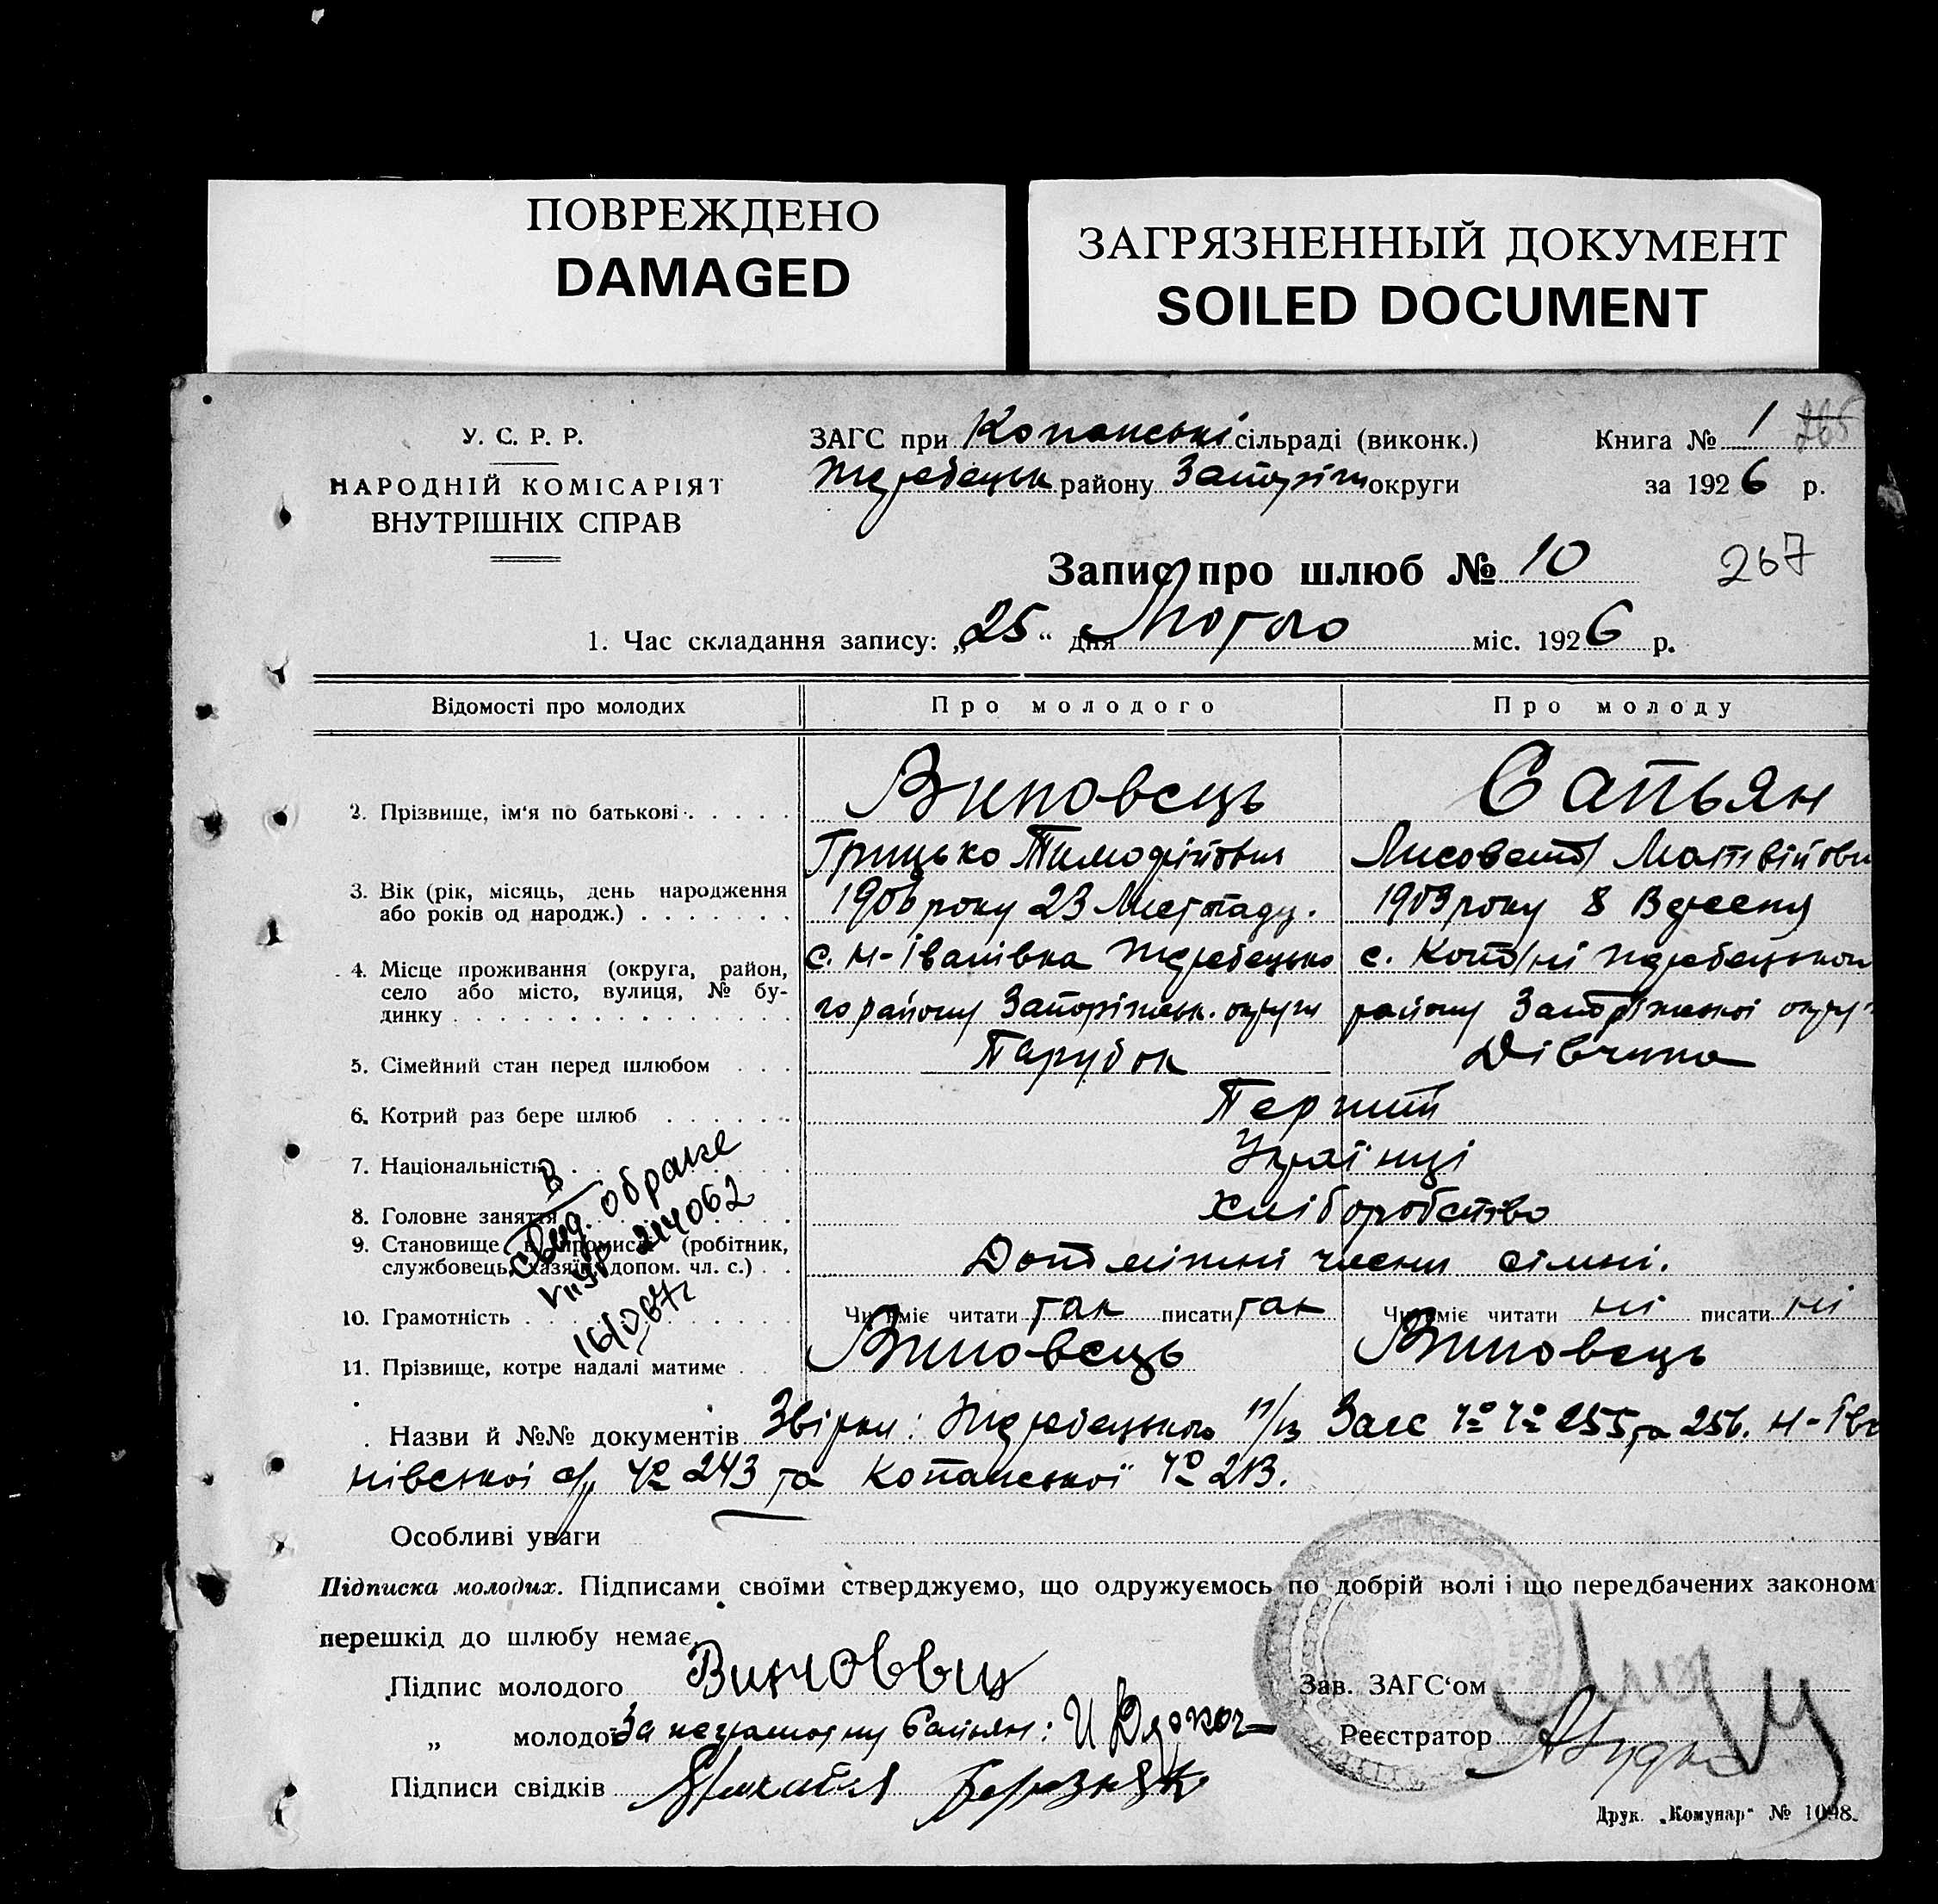 ПОВРЕЖДЕНО
DAMAGED
ЗАГРЯЗНЕННЫЙ ДОКУМЕНТ
SOILED DOCUMENT
У. С. Р. Р.
НАРОДНІЙ КОМІСАРІЯТ
ВНУТРІШНІХ СПРАВ
ЗАГС при Копанські сільраді (виконк.)
Жеребецьк району Запоріж округи
Книга № 1 265
за 1926 р.
Запис про шлюб № 10
267
1. Час складання запису: „25“ дня Лютого міс. 1926 р.
Відомості про молодих Про молодого Про молоду
2. Прізвище, ім‘я по батькові Виновець Сапьян
Грицько Тимофійович Лисовета Матвійовн
3. Вік (рік, місяць, день народження або років од народж.) 1906 року 23 Листпаду. 1903 року 8 Вересня
4. Місце проживання (округа, район, село або місто, вулиця, № будинку с. Н-Іванівка Жеребецько с. Копані Жеребецького
го району Запоріжськ. округи району Запоріжської округ
5. Сімейний стан перед шлюбом Парубок Дівчина
6. Котрий раз бере шлюб Перший
7. Національність Українці
8. Головне заняття Хліборобство
9. Становище в промислі (робітник, службовець, хазяїн, допом. чл. с.) Допоміжні члени сімні.
10. Грамотність Чи вміє читати так писати так Чи вміє читати ні писати ні
11. Прізвище, котре надалі матиме Виновець Виновець
В
свид. о браке
214062
16/
Назви й №№ документів Звірки: Жеребецького п/із Загс №№ 255 та 256. Н-Іва
нівської с/р № 243 та Копанської № 213.
Особливі уваги
Підписка молодих. Підписами своїми стверджуємо, що одружуємось по добрій волі і що передбачених законом
перешкід до шлюбу немає.
Підпис молодого Виновец
„ молодої За неграмотну Сапьян: И
Підписи свідків Березняк
Зав. ЗАГС‘ом
Реєстратор
Друк. „Комунар“ № 1098.